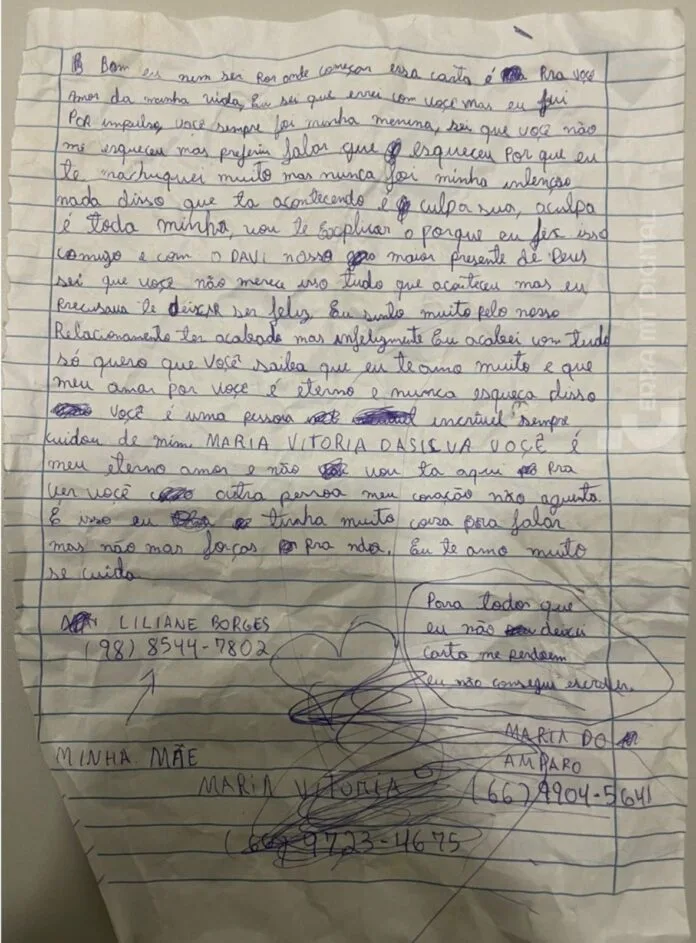 Bom eu nem sei por onde começar essa carta é Pra você
Amor da minha vida, Eu sei que errei com você mas eu fui
POR impulso, você sempre foi minha menina, sei que você não
me esqueceu mas preferiu falar que esqueceu Por que eu
te machuquei muito mas nunca foi minha intenção
nada disso que ta acontecendo é culpa sua, aculpa
é toda minha, vou te Explicar o porque eu fez isso
comigo e com o DAVI nosso maior presente de Deus
sei que você não merece isso tudo que aconteceu mas eu
Precisava te deixar ser feliz. Eu sinto muito pelo nosso
Relacionamento ter acabado mas infelizmente Eu acabei com tudo
só quero que Você saiba que eu te amo muito e que
meu amor por você é eterno e nunca esqueça disso
você é uma pessoa incrivel sempre
cuidou de mim MARIA VITORIA DASILVA VOÇÊ É
meu eterno amor e não vou ta aqui Pra
ver você outra pessoa meu coração não aguenta.
É isso eu tinha muito coisa para falar
mas não mas forças Pra nda. Eu te amo muito
se cuida
Para todos que
eu não deixei
carta me perdoem
eu não consegui escrever.
LILIANE BORGES
(98) 8544-7802
MINHA MÃE
MARIA DO
AMPARO
(66) 9904-5641
MARIA VITORIA
(66) 9723-4675
TERRA MT DIGITAL